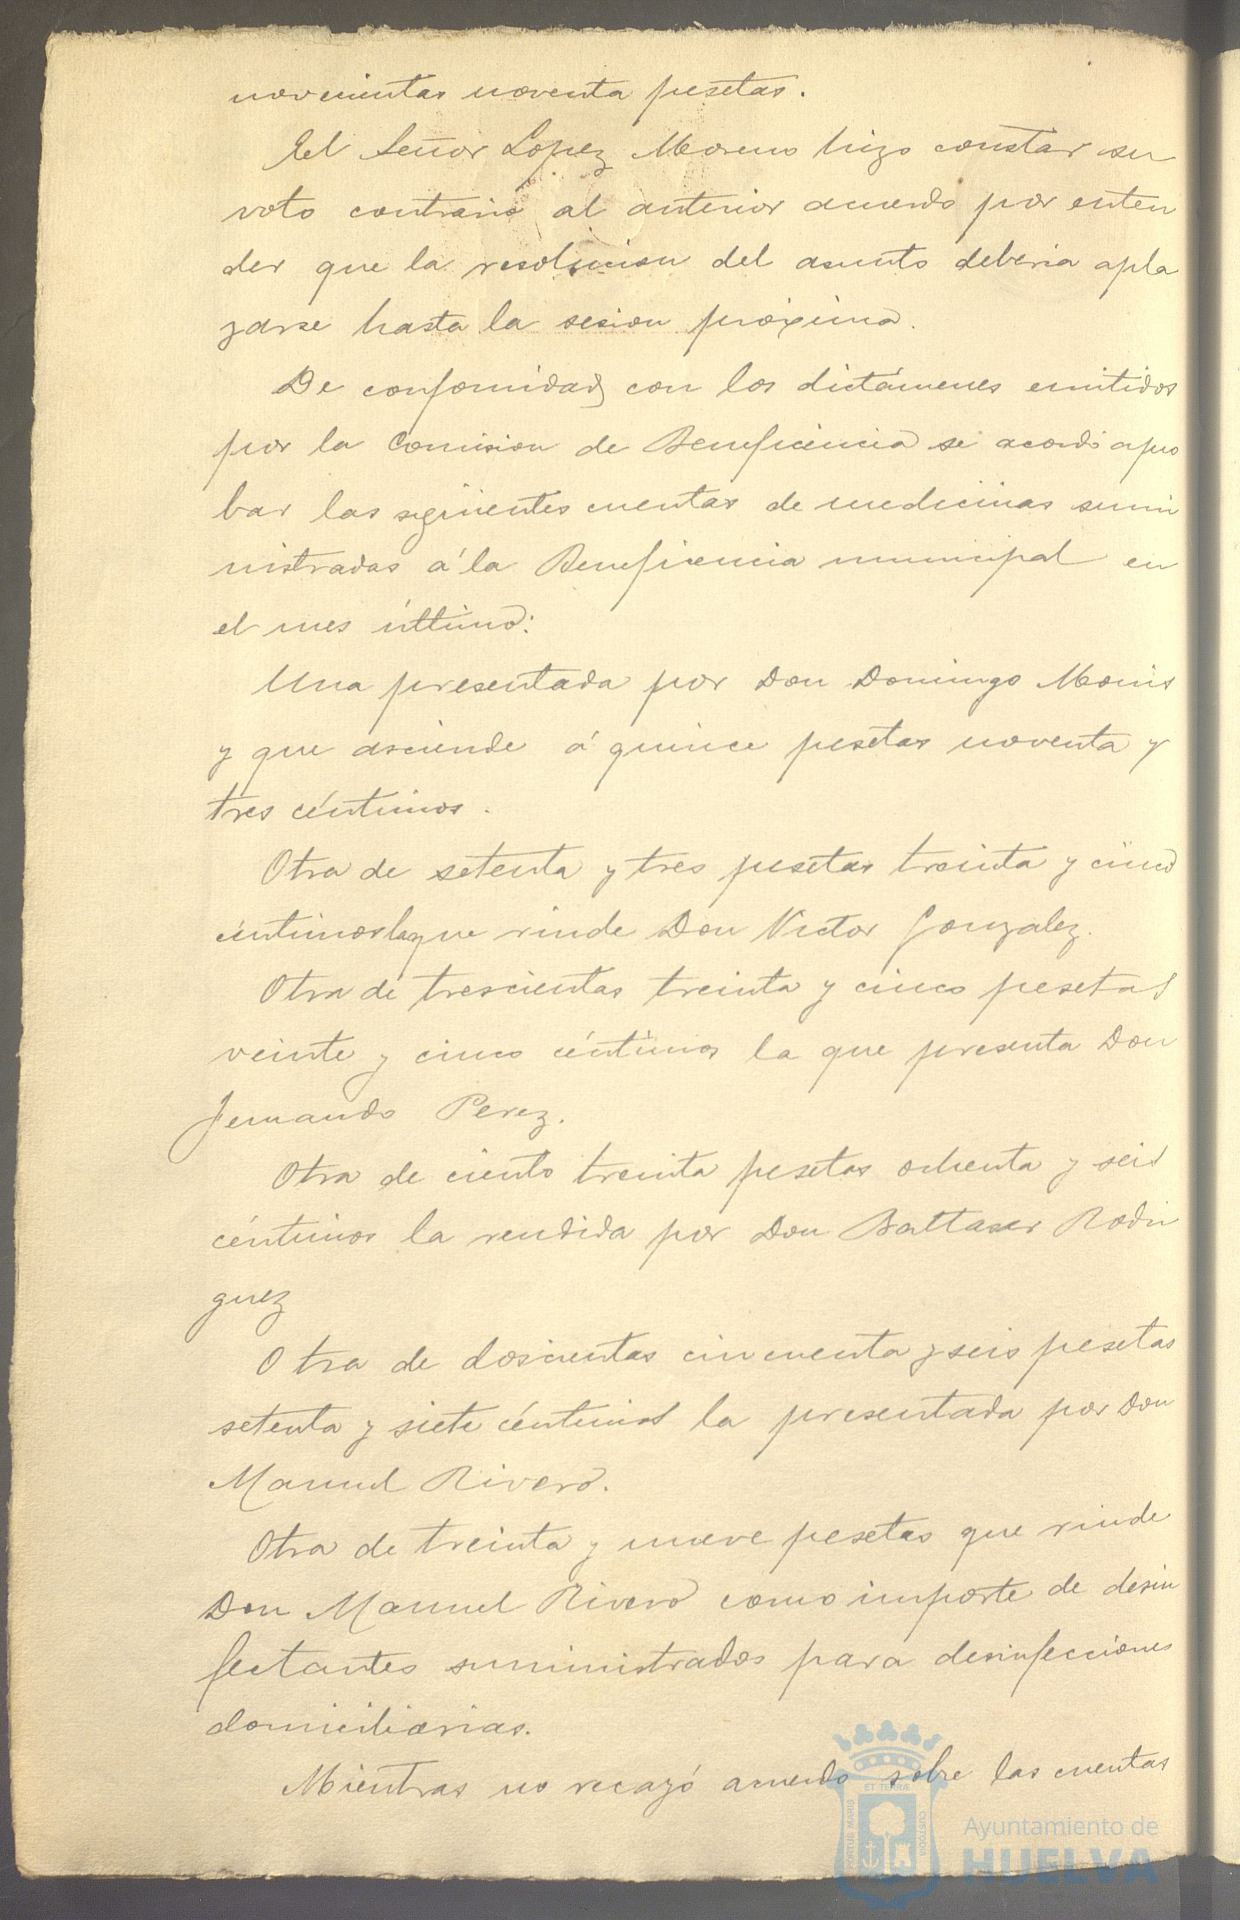 novecientas noventa pesetas.
El Señor Lopez Moreno hizo constar su
voto contrario al anterior acuerdo por enten
der que la resolucion del asunto deberia apla
zarse hasta la sesion próxima.
De conformidad con los dictámenes emitidos
por la Comision de Beneficencia se acordó apro
bar las siguientes cuentas de medicinas sumi
nistradas á la Beneficencia municipal en
el mes último:
Una presentada por Don Domingo Monis
y que asciende á quince pesetas noventa y
tres céntimos.
Otra de setenta y tres pesetas treinta y cinco
céntimos la que rinde Don Victor Gonzalez.
Otra de trescientas treinta y cinco pesetas
veinte y cinco céntimos la que presenta Don
Fernando Perez.
Otra de ciento treinta pesetas ochenta y seis
céntimos la rendida por Don Baltasar Rodri
guez
Otra de doscientas cincuenta y seis pesetas
setenta y siete céntimos la presentada por Don
Manuel Rivero.
Otra de treinta y nueve pesetas que rinde
Don Manuel Rivero como importe de desin
fectantes suministrados para desinfecciones
domiciliarias.
Mientras no recayó acuerdo sobre las cuentas
PORTUS MARIS ET TERRAE CUSTODIA
Ayuntamiento de
HUELVA